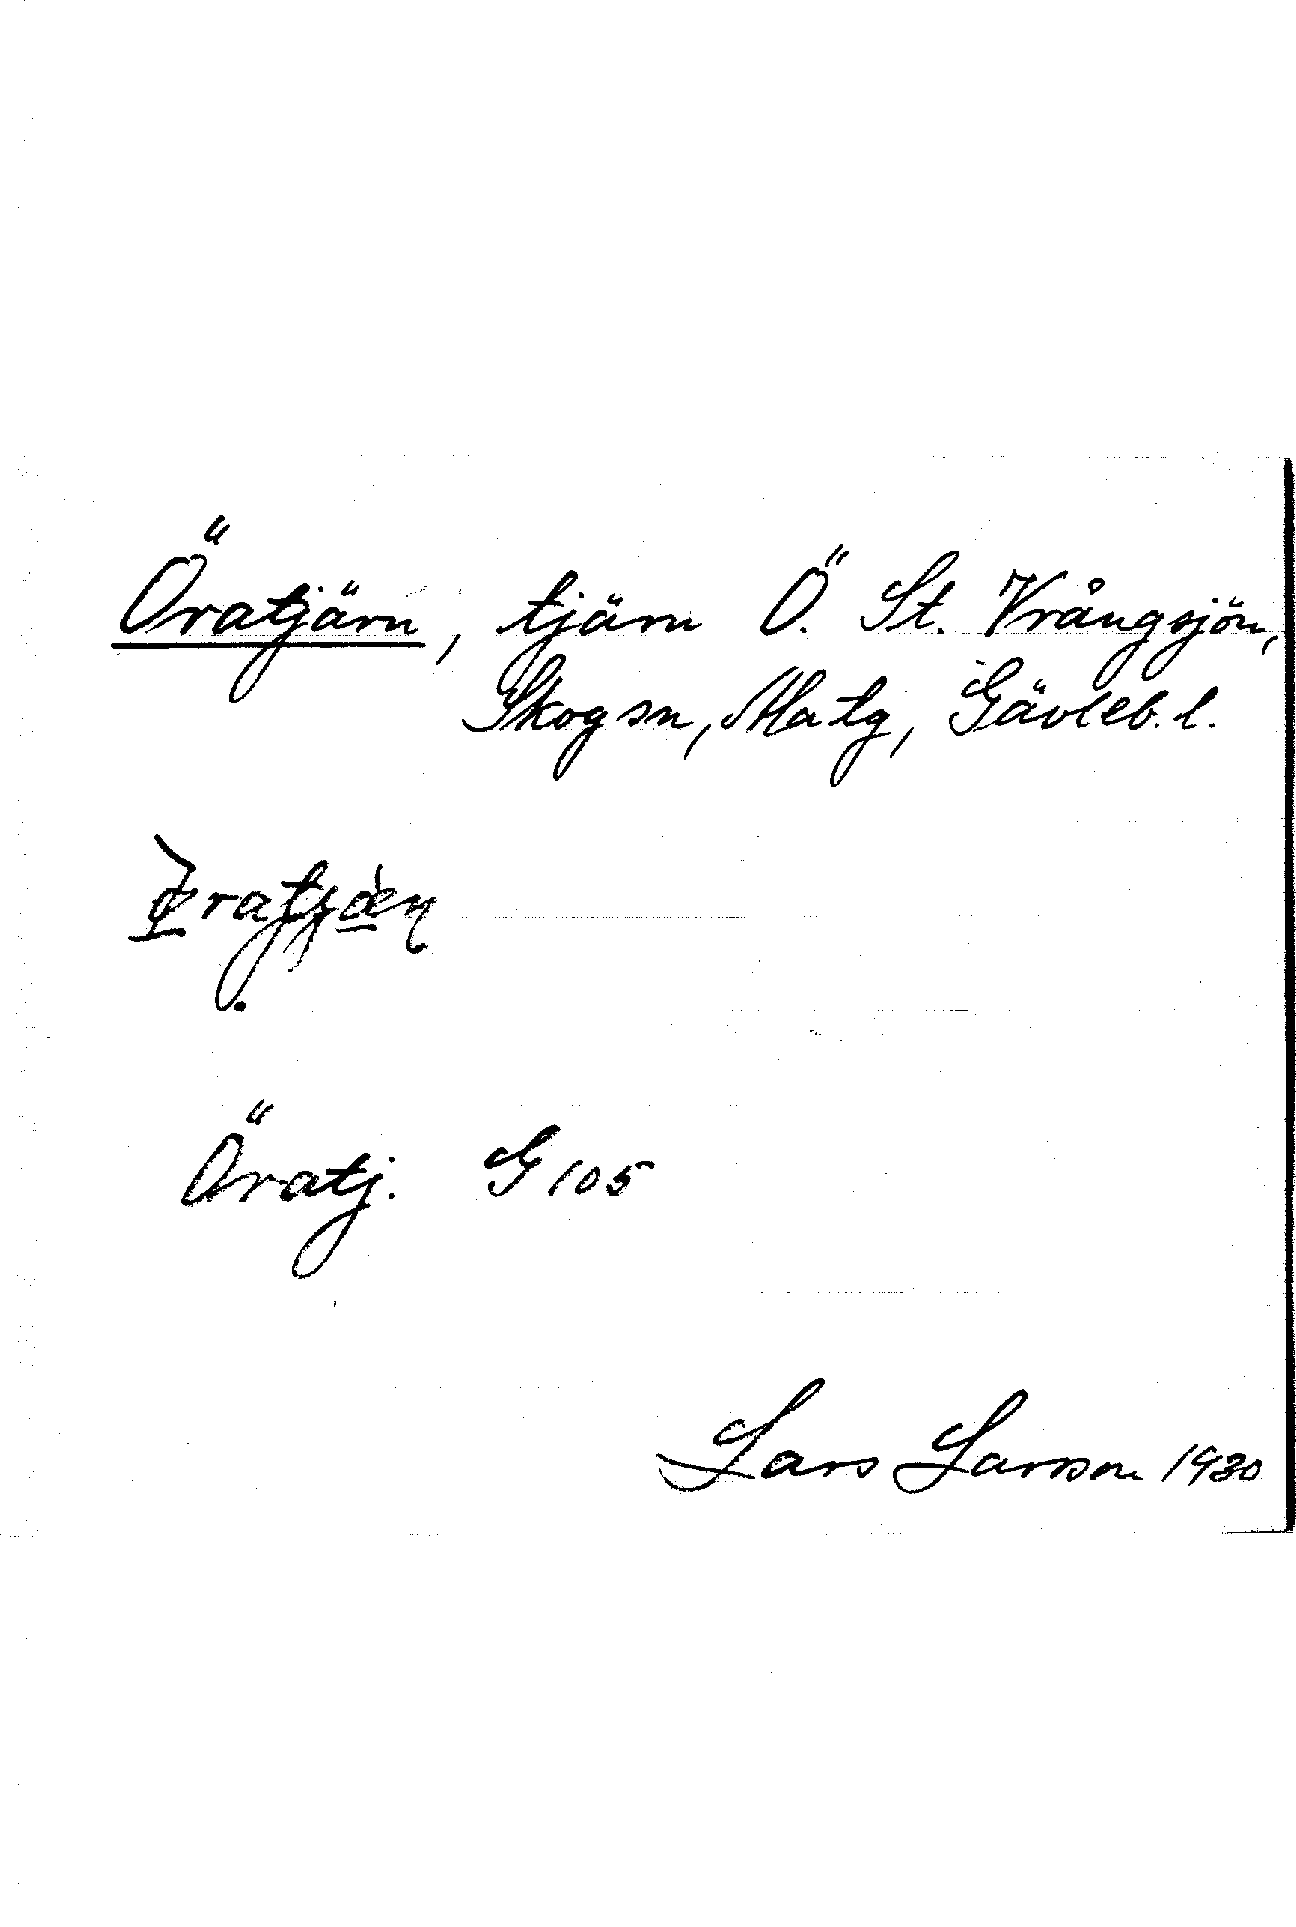 Öratjärn, tjärn Ö. St. Vrångsjön,
Skogsn, Matg, Gävleb. l.
Öratj. G 105
Lars Larsson 1930